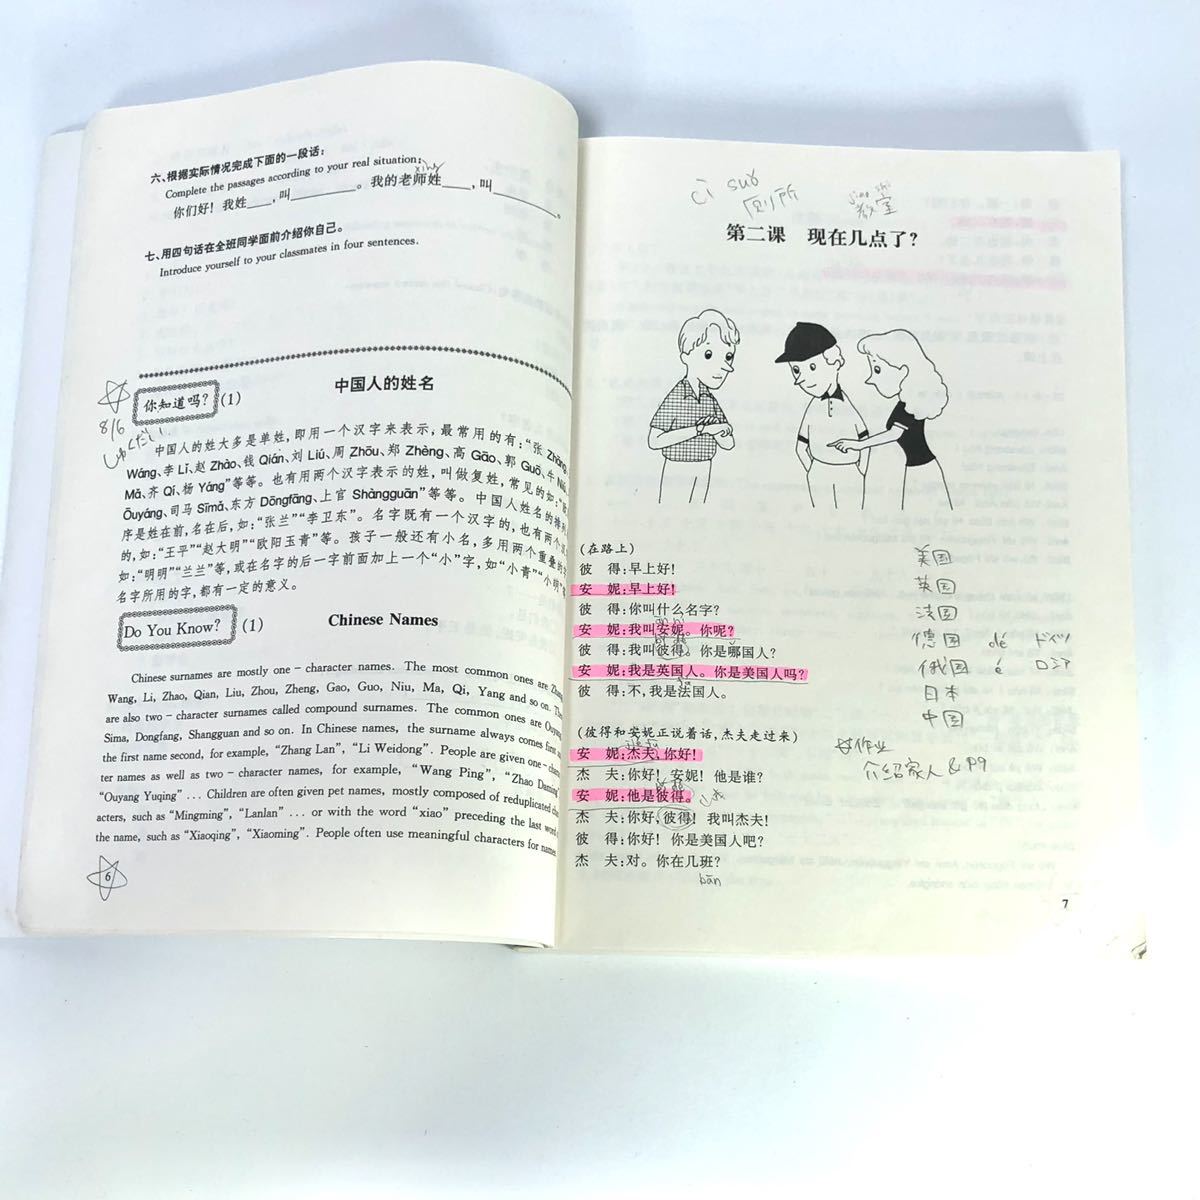 六、根据实际情况完成下面的一段话:
Complete the passages according to your real situation:
xìng
你们好! 我姓____,叫________。我的老师姓____,叫________。
七、用四句话在全班同学面前介绍你自己。
Introduce yourself to your classmates in four sentences.
中国人的姓名
你知道吗? (1)
8/6
しゅくだい
中国人的姓大多是单姓,即用一个汉字来表示,最常用的有:“张 Zhāng
Wáng、李 Lǐ、赵 Zhào、钱 Qián、刘 Liú、周 Zhōu、郑 Zhèng、高 Gāo、郭 Guō、牛
Mǎ、齐 Qí、杨 Yáng”等等。也有用两个汉字表示的姓,叫做复姓,常见的如:
Ōuyáng、司马 Sīmǎ、东方 Dōngfāng、上官 Shàngguān”等等。中国人姓名的排列
序是姓在前,名在后,如:“张兰”“李卫东”。名字既有一个汉字的,也有两个
的,如:“王平”“赵大明”“欧阳玉青”等。孩子一般还有小名,多用两个重叠的
如:“明明”“兰兰”等,或在名字的后一字前面加上一个“小”字,如“小青”“小明”
名字所用的字,都有一定的意义。
Do You Know? (1)
Chinese Names
Chinese surnames are mostly one-character names. The most common ones are Zhang,
Wang, Li, Zhao, Qian, Liu, Zhou, Zheng, Gao, Guo, Niu, Ma, Qi, Yang and so on. The
are also two-character surnames called compound surnames. The common ones are Ouyang,
Sima, Dongfang, Shangguan and so on. In Chinese names, the surname always comes first
the first name second, for example, “Zhang Lan”, “Li Weidong”. People are given one-
ter names as well as two-character names, for example, “Wang Ping”, “Zhao Daming”
“Ouyang Yuqing” ... Children are often given pet names, mostly composed of reduplicated
acters, such as “Mingming”, “Lanlan” ... or with the word “xiao” preceding the last word
the name, such as “Xiaoqing”, “Xiaoming”. People often use meaningful characters for names.
6
cì suǒ
厕所
教室
第二课 现在几点了?
(在路上)
彼 得:早上好!
安 妮:早上好!
彼 得:你叫什么名字?
安 妮:我叫安妮。你呢?
彼 得:我叫彼得。你是哪国人?
安 妮:我是英国人。你是美国人吗?
彼 得:不,我是法国人。
(彼得和安妮正说着话,杰夫走过来)
安 妮:杰夫,你好!
杰 夫:你好! 安妮! 他是谁?
安 妮:他是彼得。
杰 夫:你好,彼得! 我叫杰夫!
彼 得:你好! 你是美国人吧?
杰 夫:对。你在几班?
bān
美国
英国
法国
德国 dé ドイツ
俄国 é ロシア
日本
中国
作业
介绍家人 & P9
7